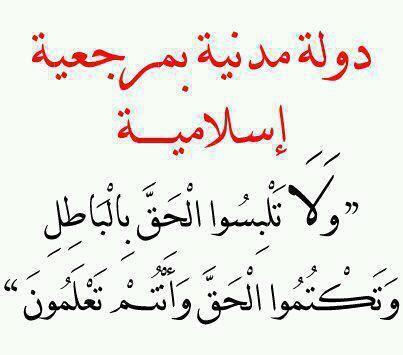 دولة مدنية بمرجعية
إسلامية
”وَلَا تَلْبِسُوا الْحَقَّ بِالْبَاطِلِ
وَتَكْتُمُوا الْحَقَّ وَأَنْتُمْ تَعْلَمُونَ“